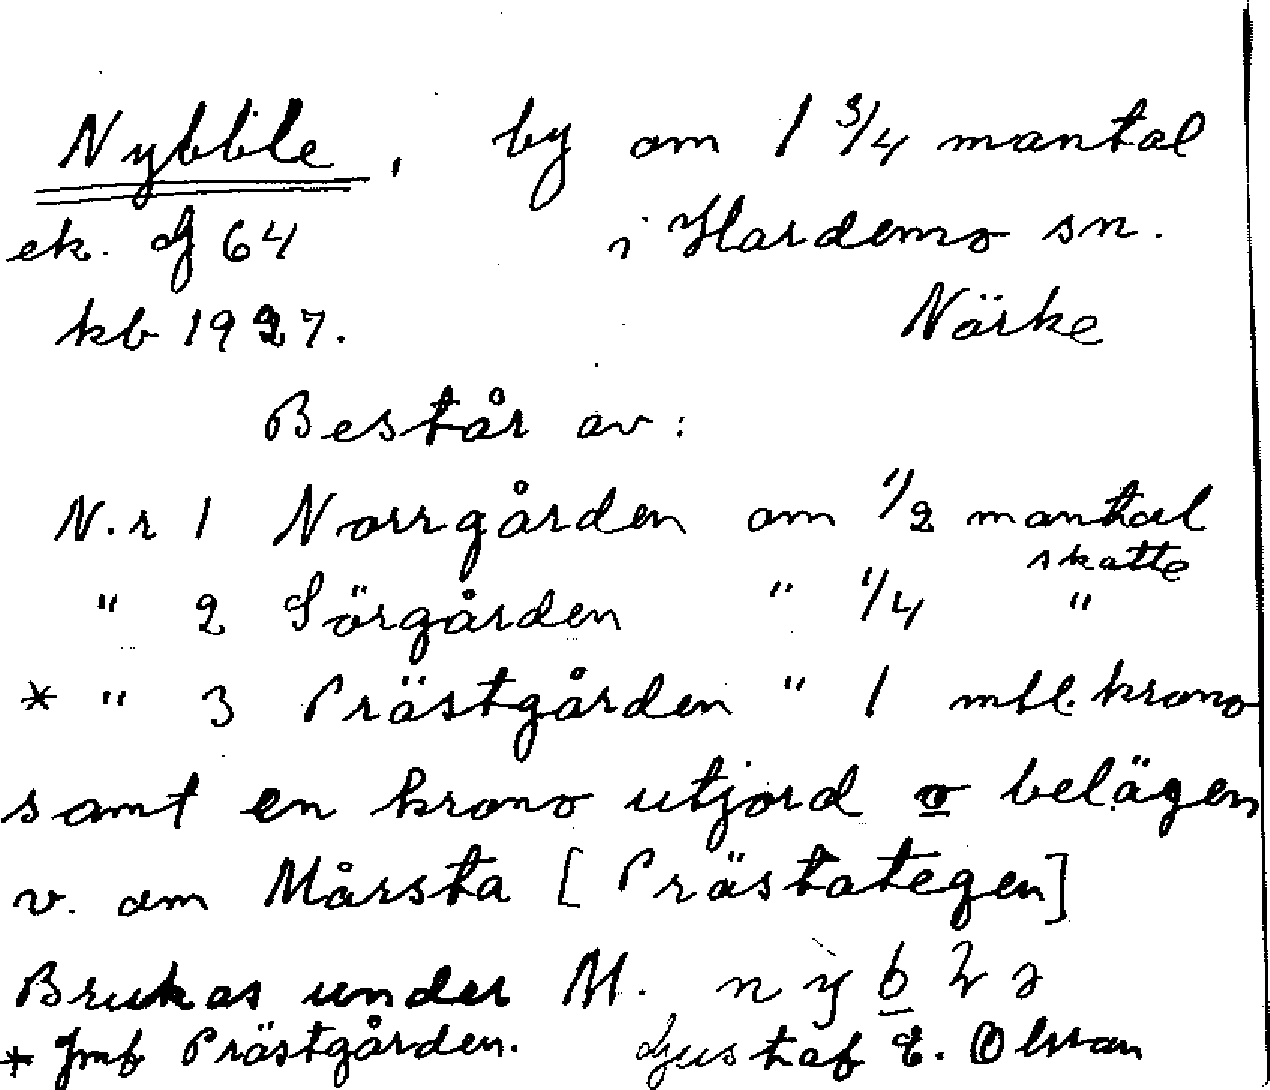 Nybble, by om 1 3/4 mantal
ek. df 64 i Hardemo sn.
kb 1927. Närke
Består av:
N.r 1 Norrgården om 1/2 mantal
skatte
" 2 Sörgården " 1/4 "
* " 3 Prästgården " 1 mtl. krono
samt en krono utjord o belägen
v. om Mårsta [Prästategen]
Brukas under M.
* Jmf Prästgården. Gustaf E. Olsson